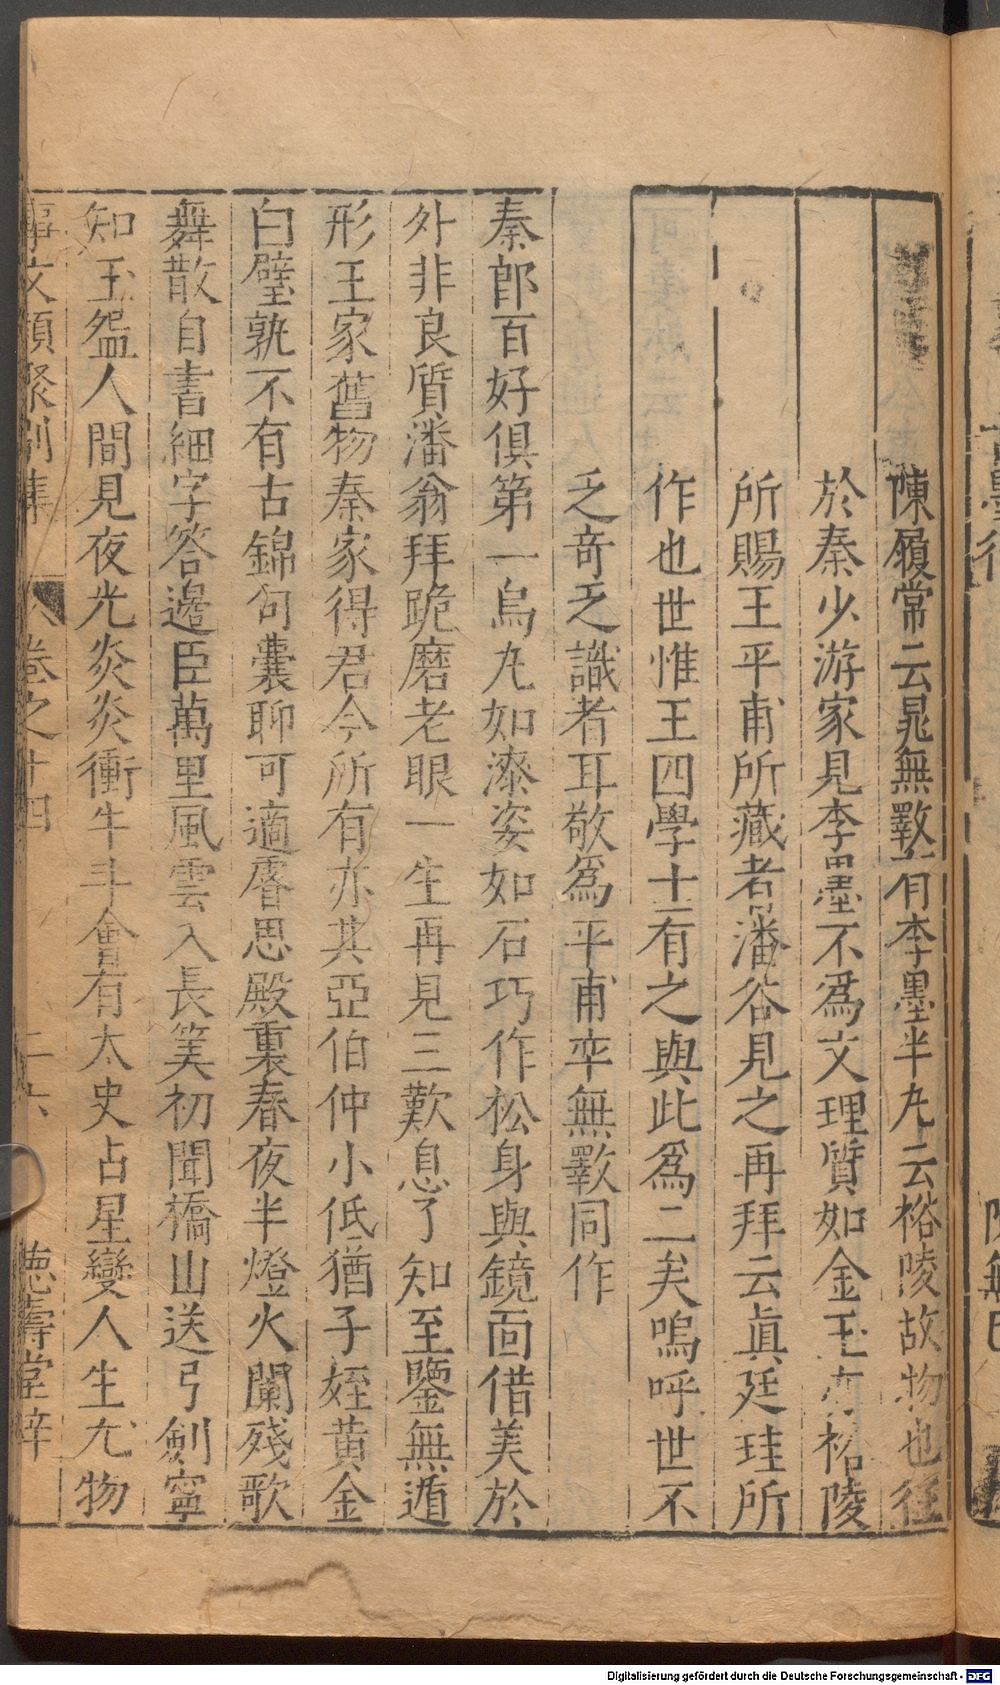 陳履常云晁無斁有李墨半丸云裕陵故物也往
於秦少游家見李墨不爲文理質如金玉亦裕陵
所賜王平甫所藏者潘谷見之再拜云眞廷珪所
作也世惟王四學士有之與此爲二矣嗚呼世不
乏奇乏識者耳敬爲平甫卒無斁同作
秦郎百好俱第一烏丸如漆姿如石巧作松身與鏡面借美於
外非良質潘翁拜跪磨老眼一生再見三歎息了知至鑒無遁
形王家舊物秦家得君今所有亦其亞伯仲小低猶子姪黃金
白璧孰不有古錦句囊聊可適睿思殿裏春夜半燈火闌殘歌
舞散自書細字答邊臣萬里風雲入長筭初聞橋山送弓劍寧
知玉盌人間見夜光炎炎衝牛斗會有太史占星變人生尤物
事文類聚別集 卷之十四 二六 德壽堂梓
Digitalisierung gefördert durch die Deutsche Forschungsgemeinschaft - DFG